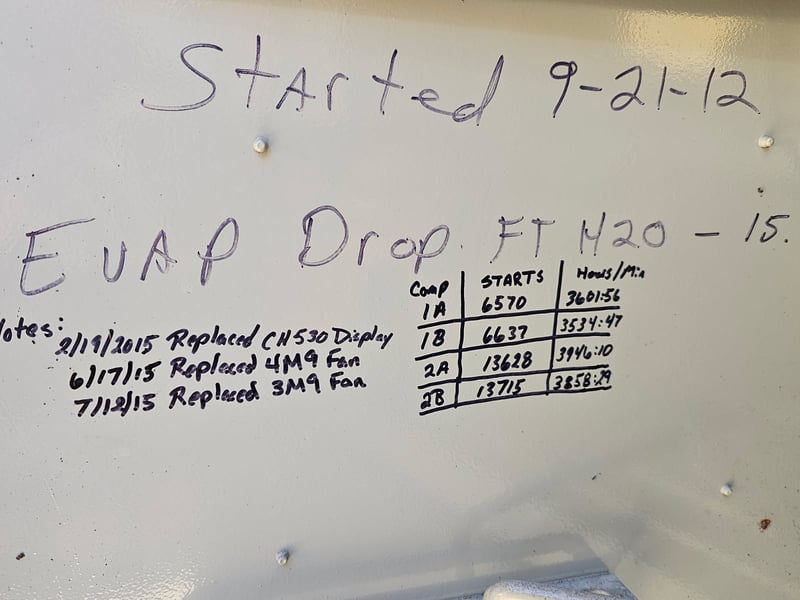 Started 9-21-12
EVAP Drop FT H20 - 15.
Notes:
2/19/2015 Replaced CH530 Display
6/17/15 Replaced 4M9 Fan
7/12/15 Replaced 3M9 Fan
Comp STARTS Hours/Min
1A 6570 3601:56
1B 6637 3534:47
2A 13628 3946:10
2B 13715 3858:29